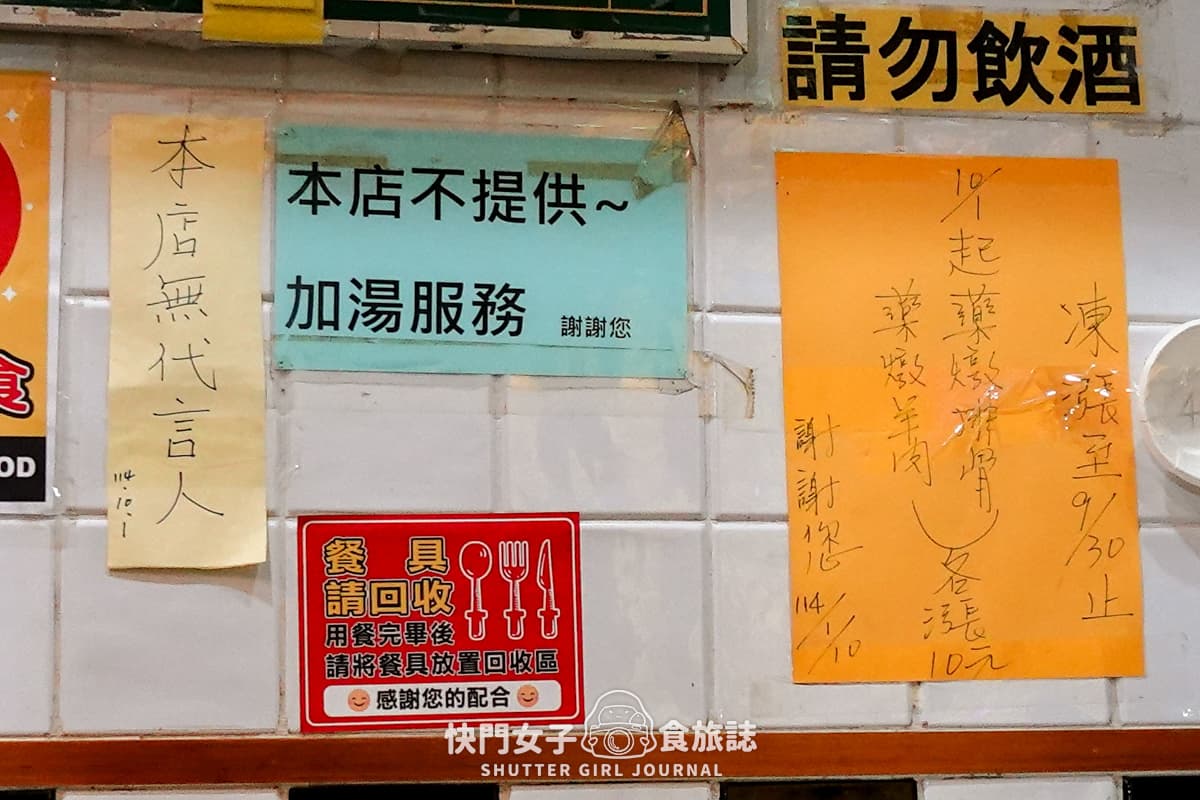 請勿飲酒
食
OD
本店無代言人
114.10.1
本店不提供~
加湯服務 謝謝您
餐具
請回收
用餐完畢後
請將餐具放置回收區
感謝您的配合
凍漲至9/30止
10/1起藥燉排骨
藥燉羊肉
各漲10元
謝謝您
114/1/10
快門女子 食旅誌
SHUTTER GIRL JOURNAL